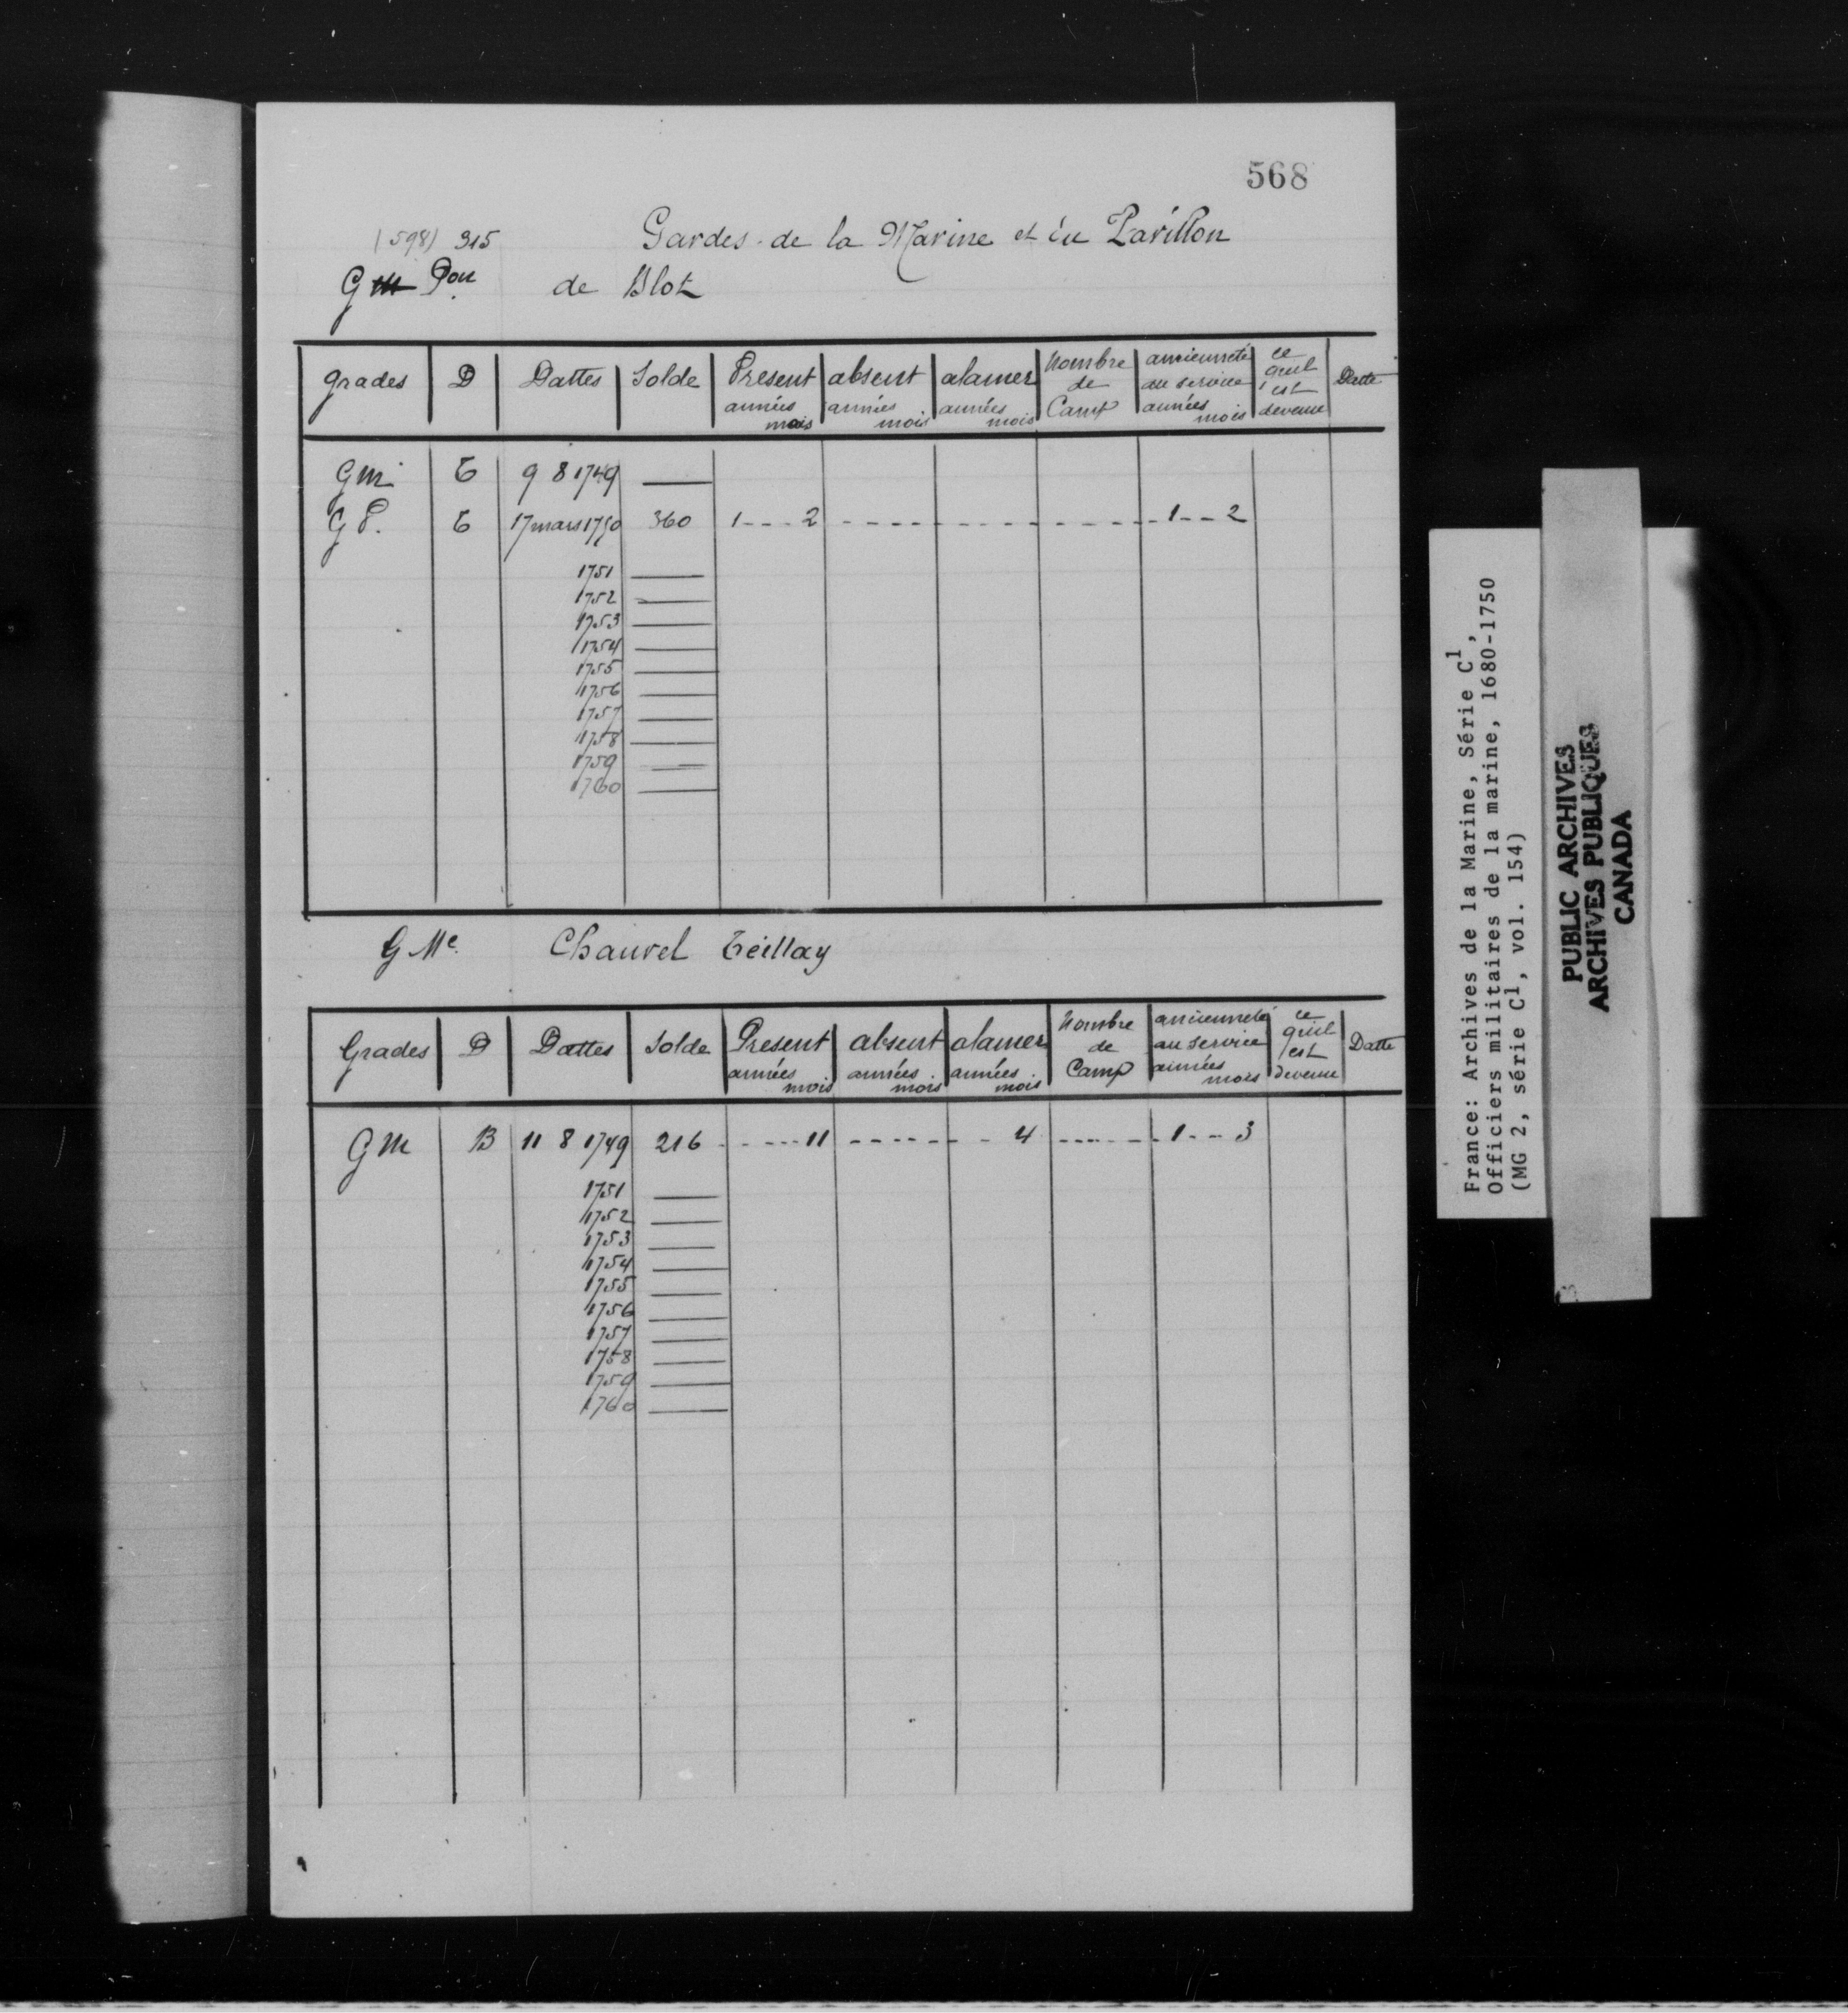 568
(598) 315 Gardes de la Marine et du Pavillon
G m Pon de Blot
grades D Dattes Solde Present absent alamer Nombre ancienneté ce Datte
années années années de au service quil
mois mois mois Camp années est
mois devenue
Gm T 9 8 1749
G P. T 17 mars 1750 360 1 - - - 2 - - - - - - - - - - - - - - - - 1 - - 2
1751
1752
1753
1754
1755
1756
1757
1758
1759
1760
G Me. Chauvel Teillay
Grades D Dattes Solde Present absent alamer Nombre ancienneté ce Datte
années années années de au service quil
mois mois mois Camp années est
mois devenue
G M B 11 8 1749 216 - - - - - 11 - - - - - - - - 4 - - - - - - 1 - - - 3
1751
1752
1753
1754
1755
1756
1757
1758
1759
1760
France: Archives de la Marine, Série C1,
Officiers militaires de la marine, 1680-1750
(MG 2, série C1, vol. 154)
PUBLIC ARCHIVES
ARCHIVES PUBLIQUES
CANADA